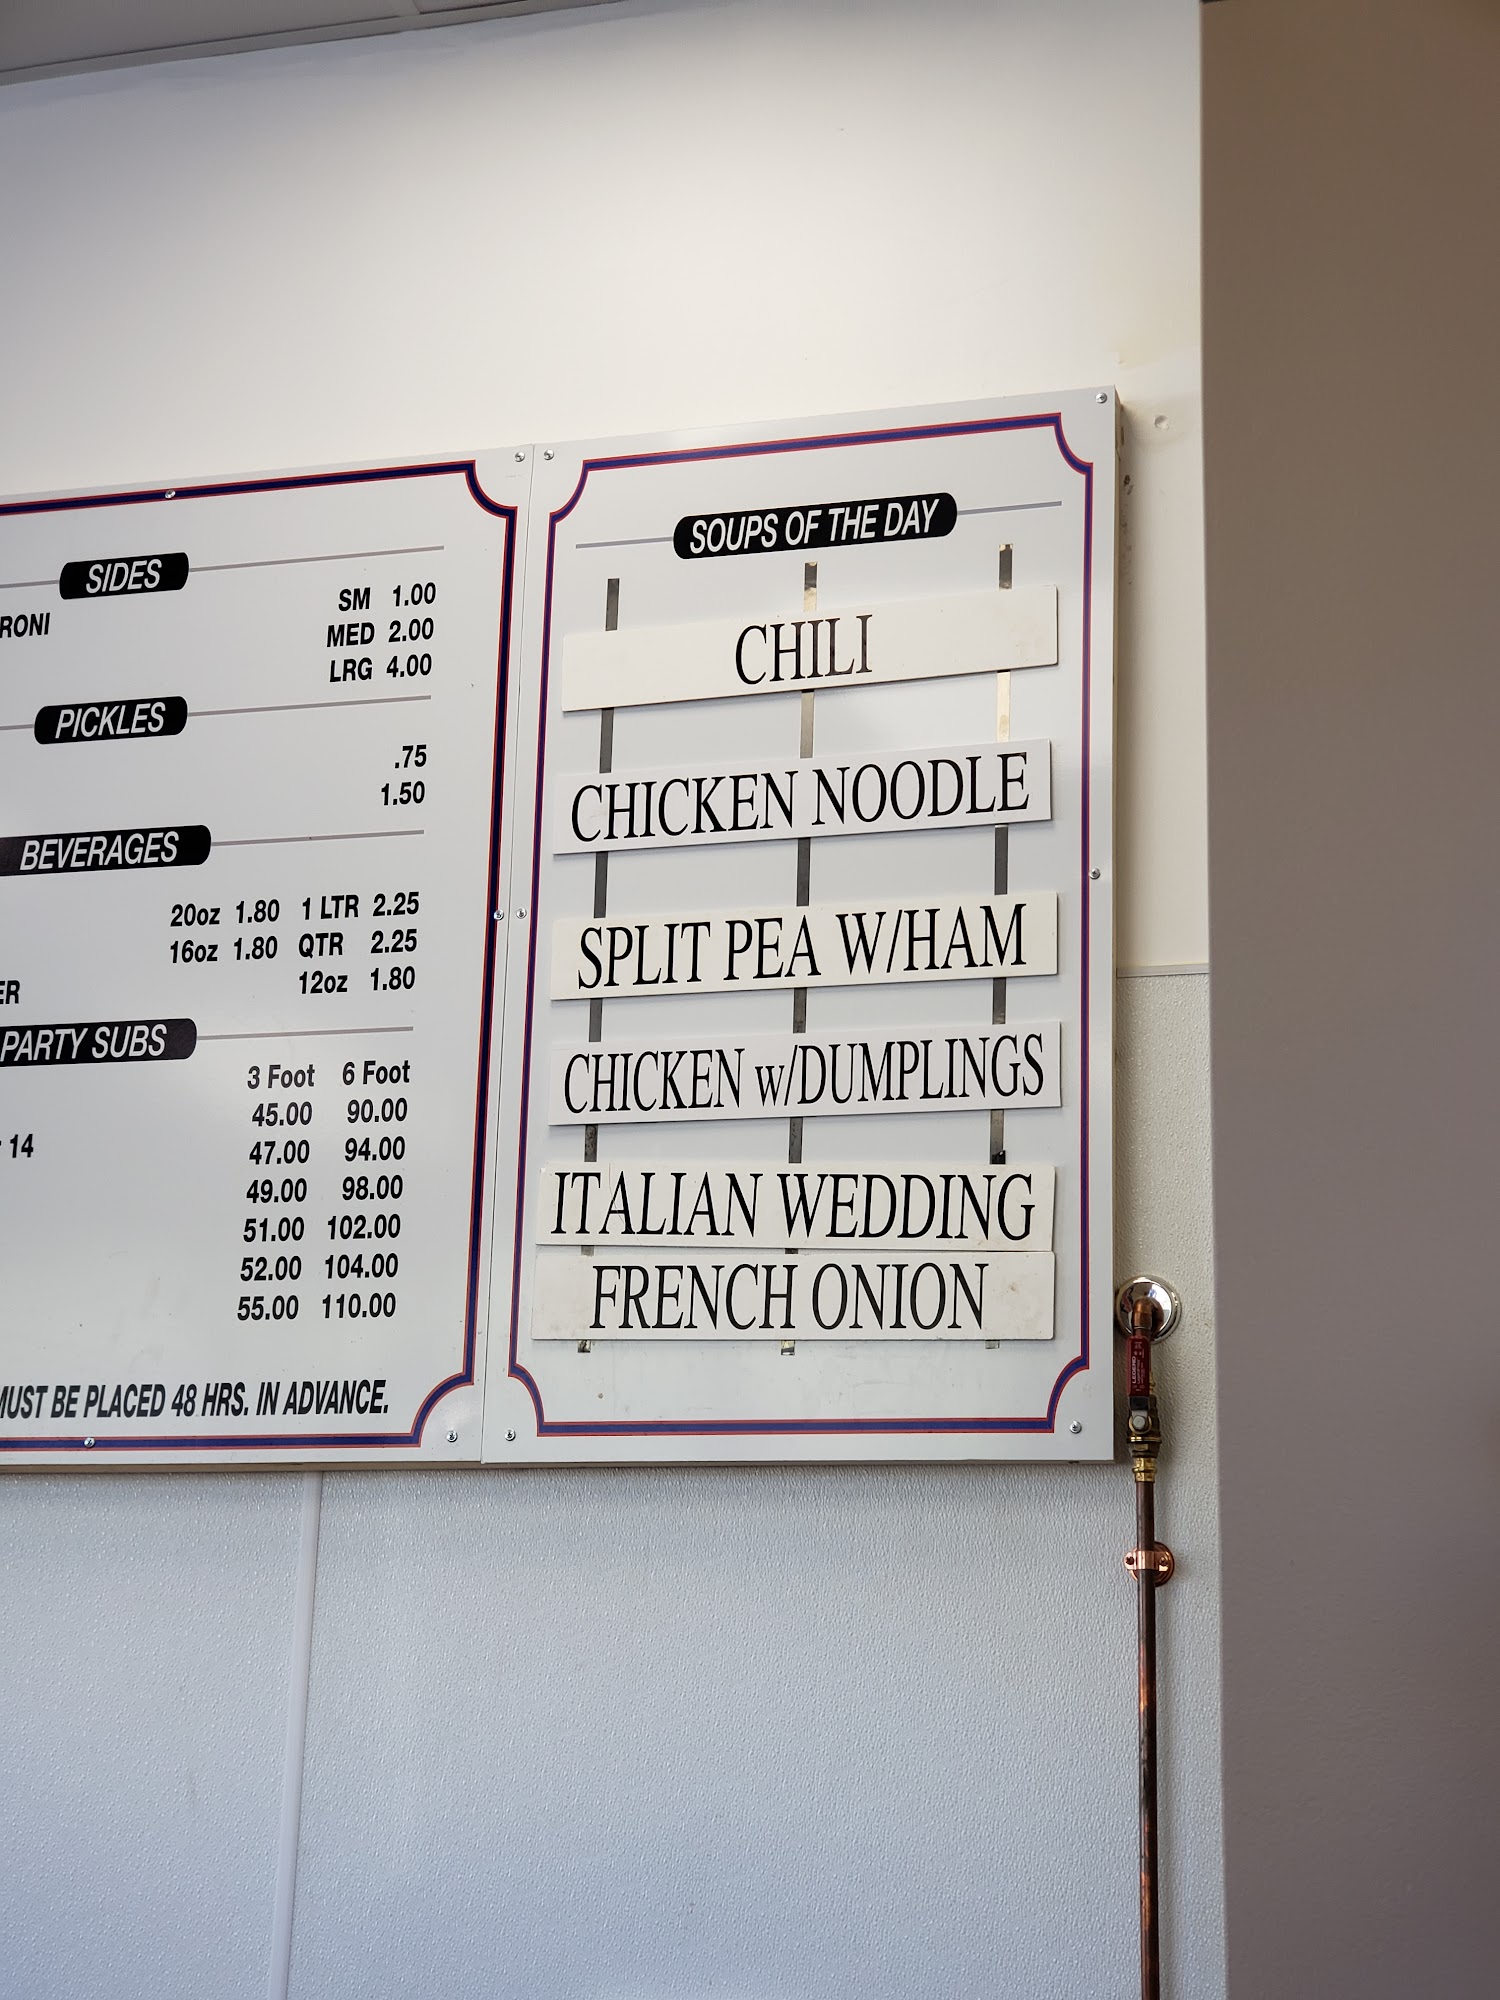 SIDES
SM 1.00
RONI
MED 2.00
LRG 4.00
PICKLES
.75
1.50
BEVERAGES
20oz 1.80 1 LTR 2.25
16oz 1.80 QTR 2.25
ER 12oz 1.80
PARTY SUBS
3 Foot 6 Foot
45.00 90.00
14 47.00 94.00
49.00 98.00
51.00 102.00
52.00 104.00
55.00 110.00
MUST BE PLACED 48 HRS. IN ADVANCE.
SOUPS OF THE DAY
CHILI
CHICKEN NOODLE
SPLIT PEA W/HAM
CHICKEN w/DUMPLINGS
ITALIAN WEDDING
FRENCH ONION
LEGEND